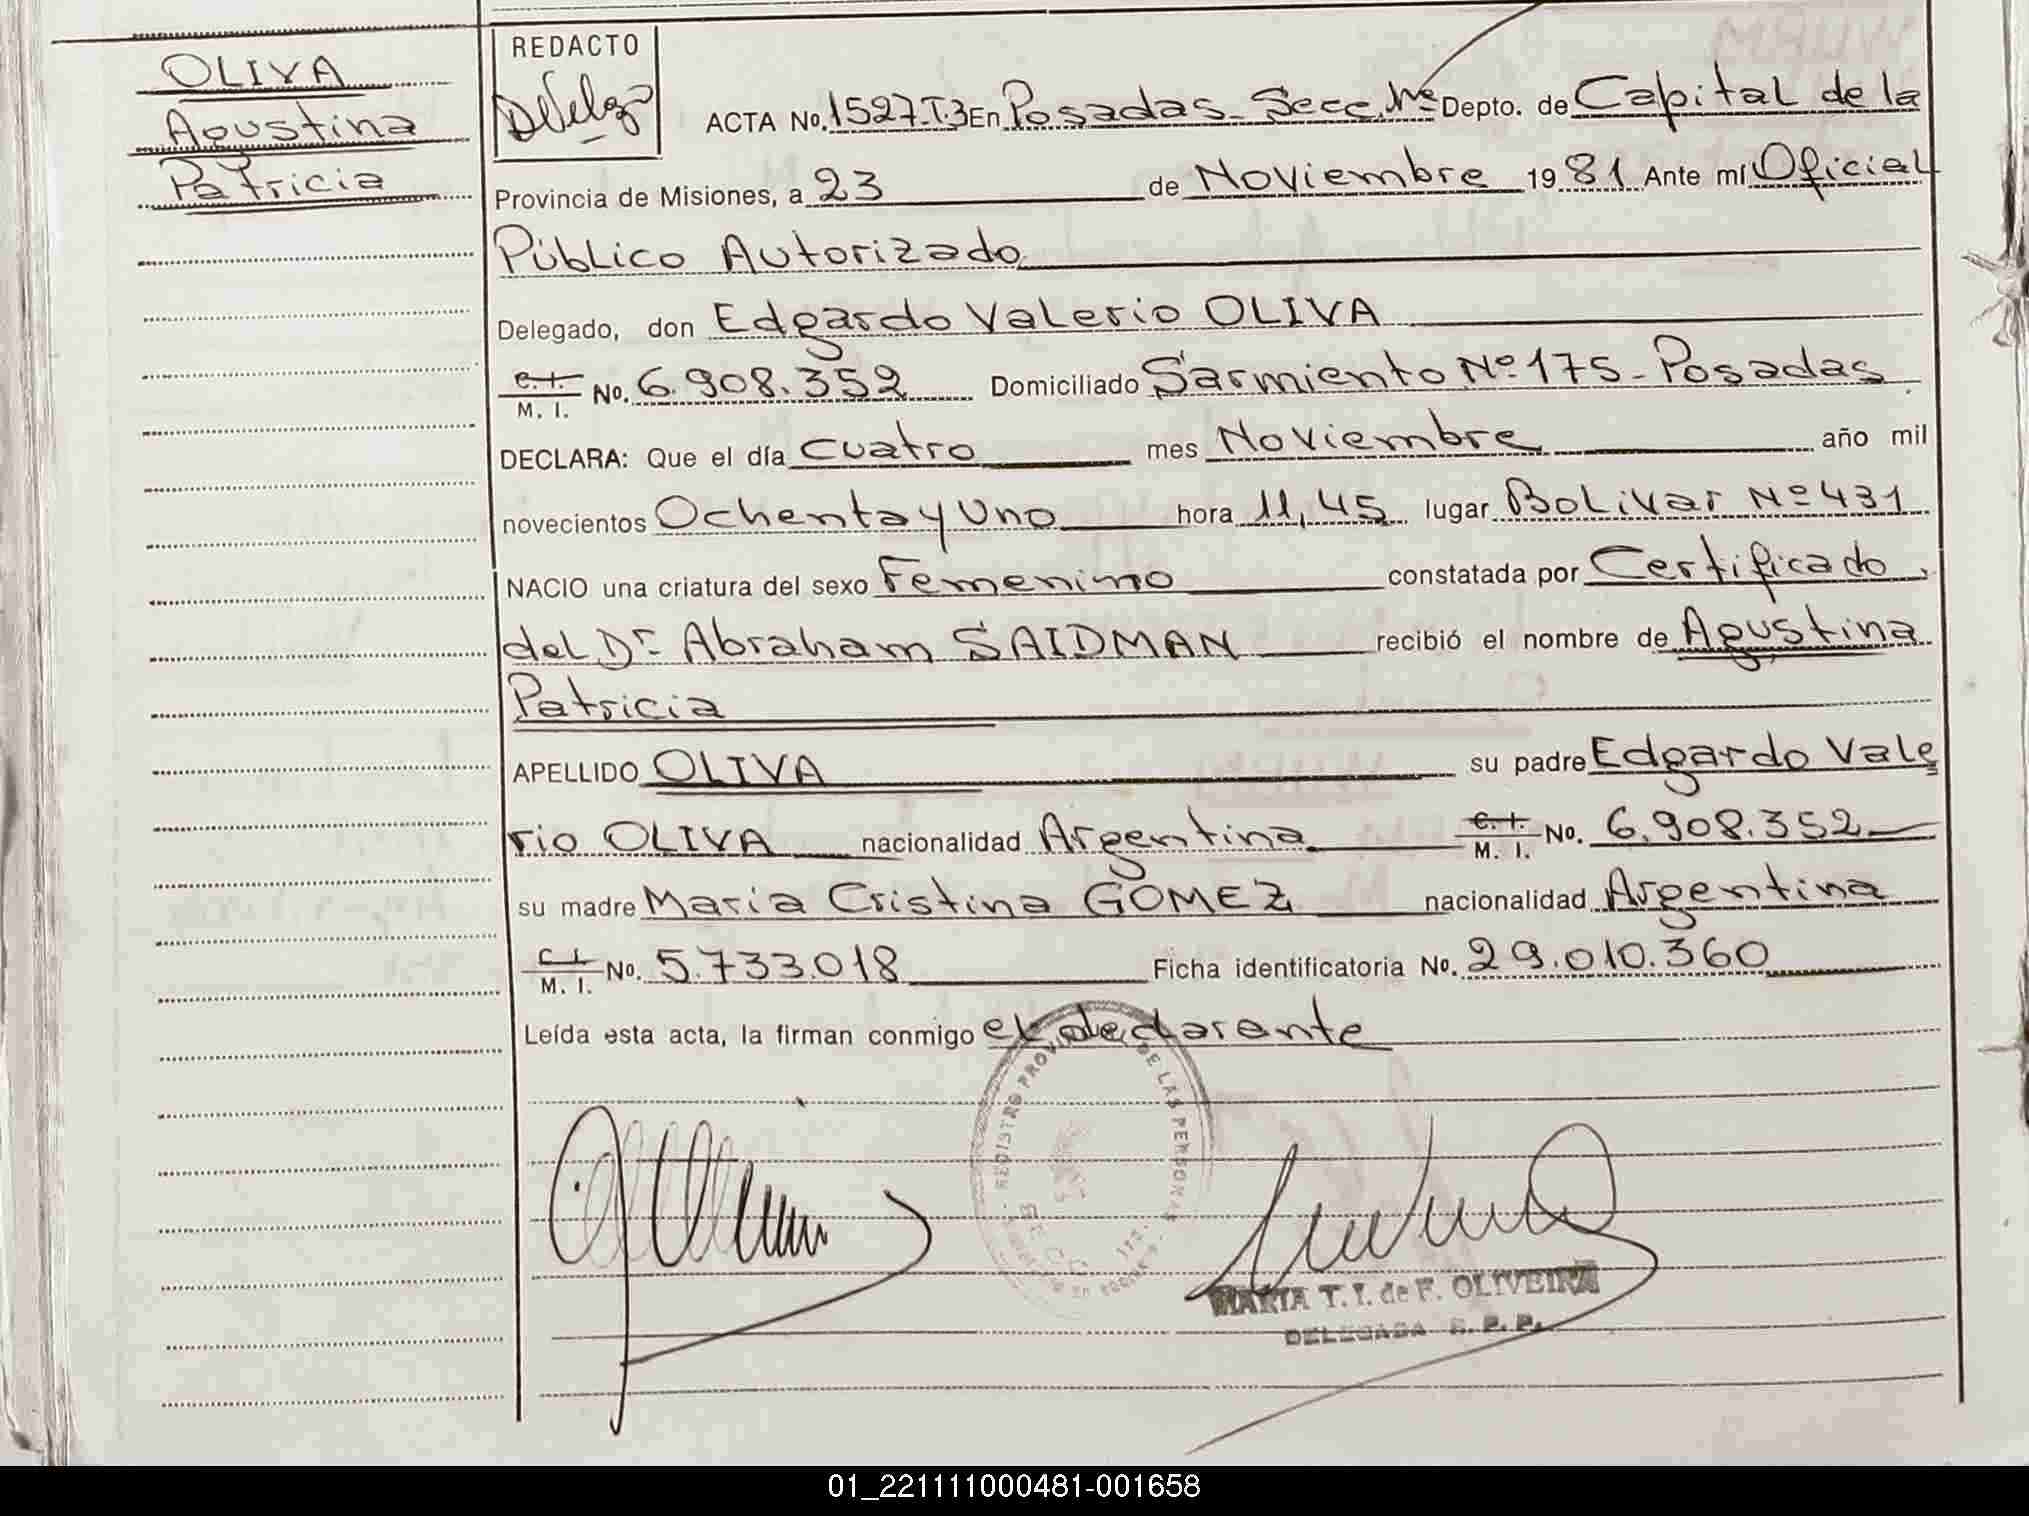 OLIVA
Agustina
Patricia
REDACTO
ACTA No. 1527-T.3 En Posadas - Secc. Nº Depto. de Capital de la
Provincia de Misiones, a 23 de Noviembre 1981 Ante mí Oficial
Público Autorizado
Delegado, don Edgardo Valerio OLIVA
C. I. M. I. No. 6.908.352 Domiciliado Sarmiento Nº 175 - Posadas
DECLARA: Que el día Cuatro mes Noviembre año mil
novecientos Ochenta y Uno hora 11,45 lugar Bolivar Nº 431
NACIO una criatura del sexo Femenino constatada por Certificado
del Dr Abraham SAIDMAN recibió el nombre de Agustina
Patricia
APELLIDO OLIVA su padre Edgardo Vale
rio OLIVA nacionalidad Argentina C. I. M. I. No. 6.908.352
su madre Maria Cristina GOMEZ nacionalidad Argentina
C. I. M. I. No. 5.733.018 Ficha identificatoria No. 29.010.360
Leída esta acta, la firman conmigo el declarante
REGISTRO PROVINCIAL DE LAS PERSONAS
MARIA T. I. de F. OLIVEIRA
DELEGADA R. P. P.
01_221111000481-001658